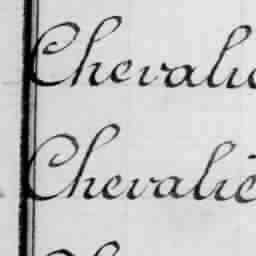 Chevalie
Chevalié